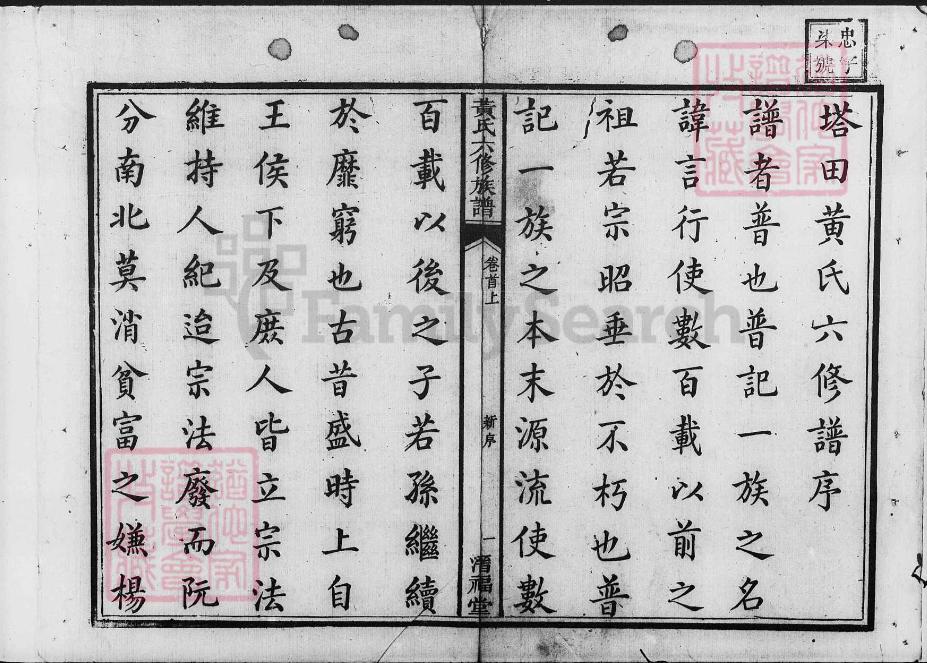 塔田黃氏六修譜序
譜者普也普記一族之名
諱言行使數百載以前之
祖若宗昭垂於不朽也普
記一族之本末源流使數
黃氏六修族譜
卷首上
新序
一
百載以後之子若孫繼續
於靡窮也古昔盛時上自
王侯下及庶人皆立宗法
維持人紀迨宗法廢而阮
分南北莫消貧富之嫌楊
FamilySearch